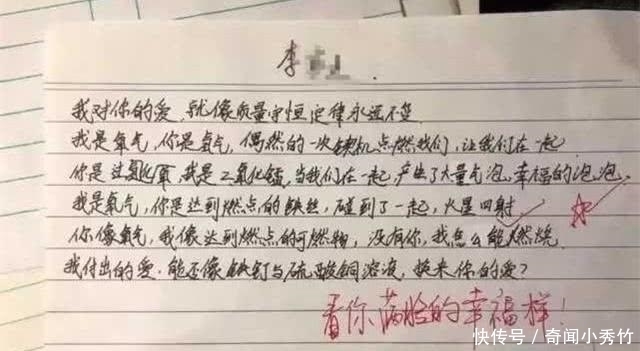 李
我对你的爱,就像质量守恒定律永远不变
我是氧气,你是氢气,偶然的一次契机点燃我们,让我们在一起
你是过氧化氢,我是二氧化锰,当我们在一起,产生了大量气泡,幸福的泡泡
我是氧气,你是达到燃点的铁丝,碰到了一起,火星四射
你像氧气,我像达到燃点的可燃物,没有你,我怎么能燃烧
我付出的爱,能否像铁钉与硫酸铜溶液,换来你的爱?
看你满脸的幸福样!
快传号 / 奇闻小秀竹